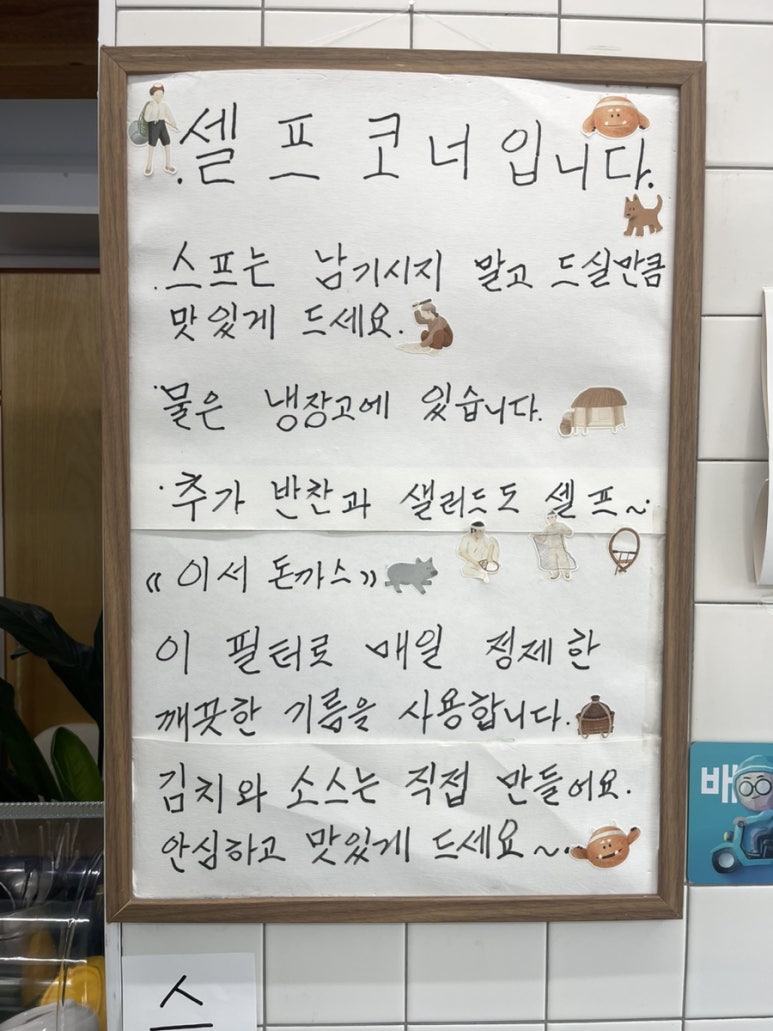 셀프 코너입니다.
· 스프는 남기시지 말고 드실만큼
맛있게 드세요.
· 물은 냉장고에 있습니다.
· 추가 반찬과 샐러드도 셀프~
《이서 돈까스》
이 필터로 매일 정제한
깨끗한 기름을 사용합니다.
김치와 소스는 직접 만들어요.
안심하고 맛있게 드세요~
배
스